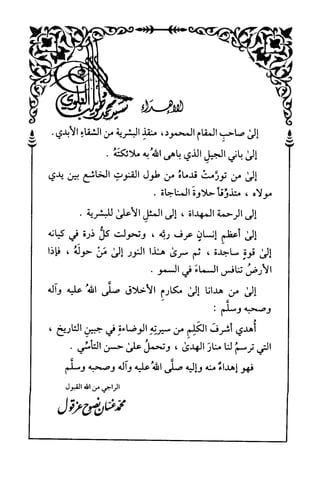 الإهداء
إلىٰ صاحبِ المقامِ المحمود، منقذِ البشرية من الشقاءِ الأبدي .
إلىٰ باني الجيلِ الذي باهى اللهُ به ملائكتَهُ .
إلىٰ من تورَّمتْ قدماهُ من طول القنوتِ الخاشعِ بين يدي
مولاه ، متذوِّقاً حلاوةَ المناجاة .
إلى الرحمة المهداة ، إلى المثلِ الأعلىٰ للبشرية .
إلى أعظمِ إنسانٍ عرف ربَّه ، وتحولت كلُّ ذرة في كيانه
إلى قوةٍ ساجدة ، ثم سرىٰ هذا النور إلىٰ مَنْ حولَهُ ، فإذا
الأرضُ تنافس السماءَ في السمو .
إلى من هدانا إلىٰ مكارمِ الأخلاق صلَّى اللهُ عليه وآله
وصحبه وسلَّم :
أُهدي أشرفَ الكَلِمِ من سيرتِهِ الوضاءةِ في جبينِ التاريخ ،
التي ترسمُ لنا منارَ الهدىٰ ، وتحملُ علىٰ حسن التأسِّي .
فهو إهداءٌ منه وإليه صلَّى اللهُ عليه وآله وصحبه وسلَّم
الراجي من الله القبول
محمد عدنان نصوح عزقول